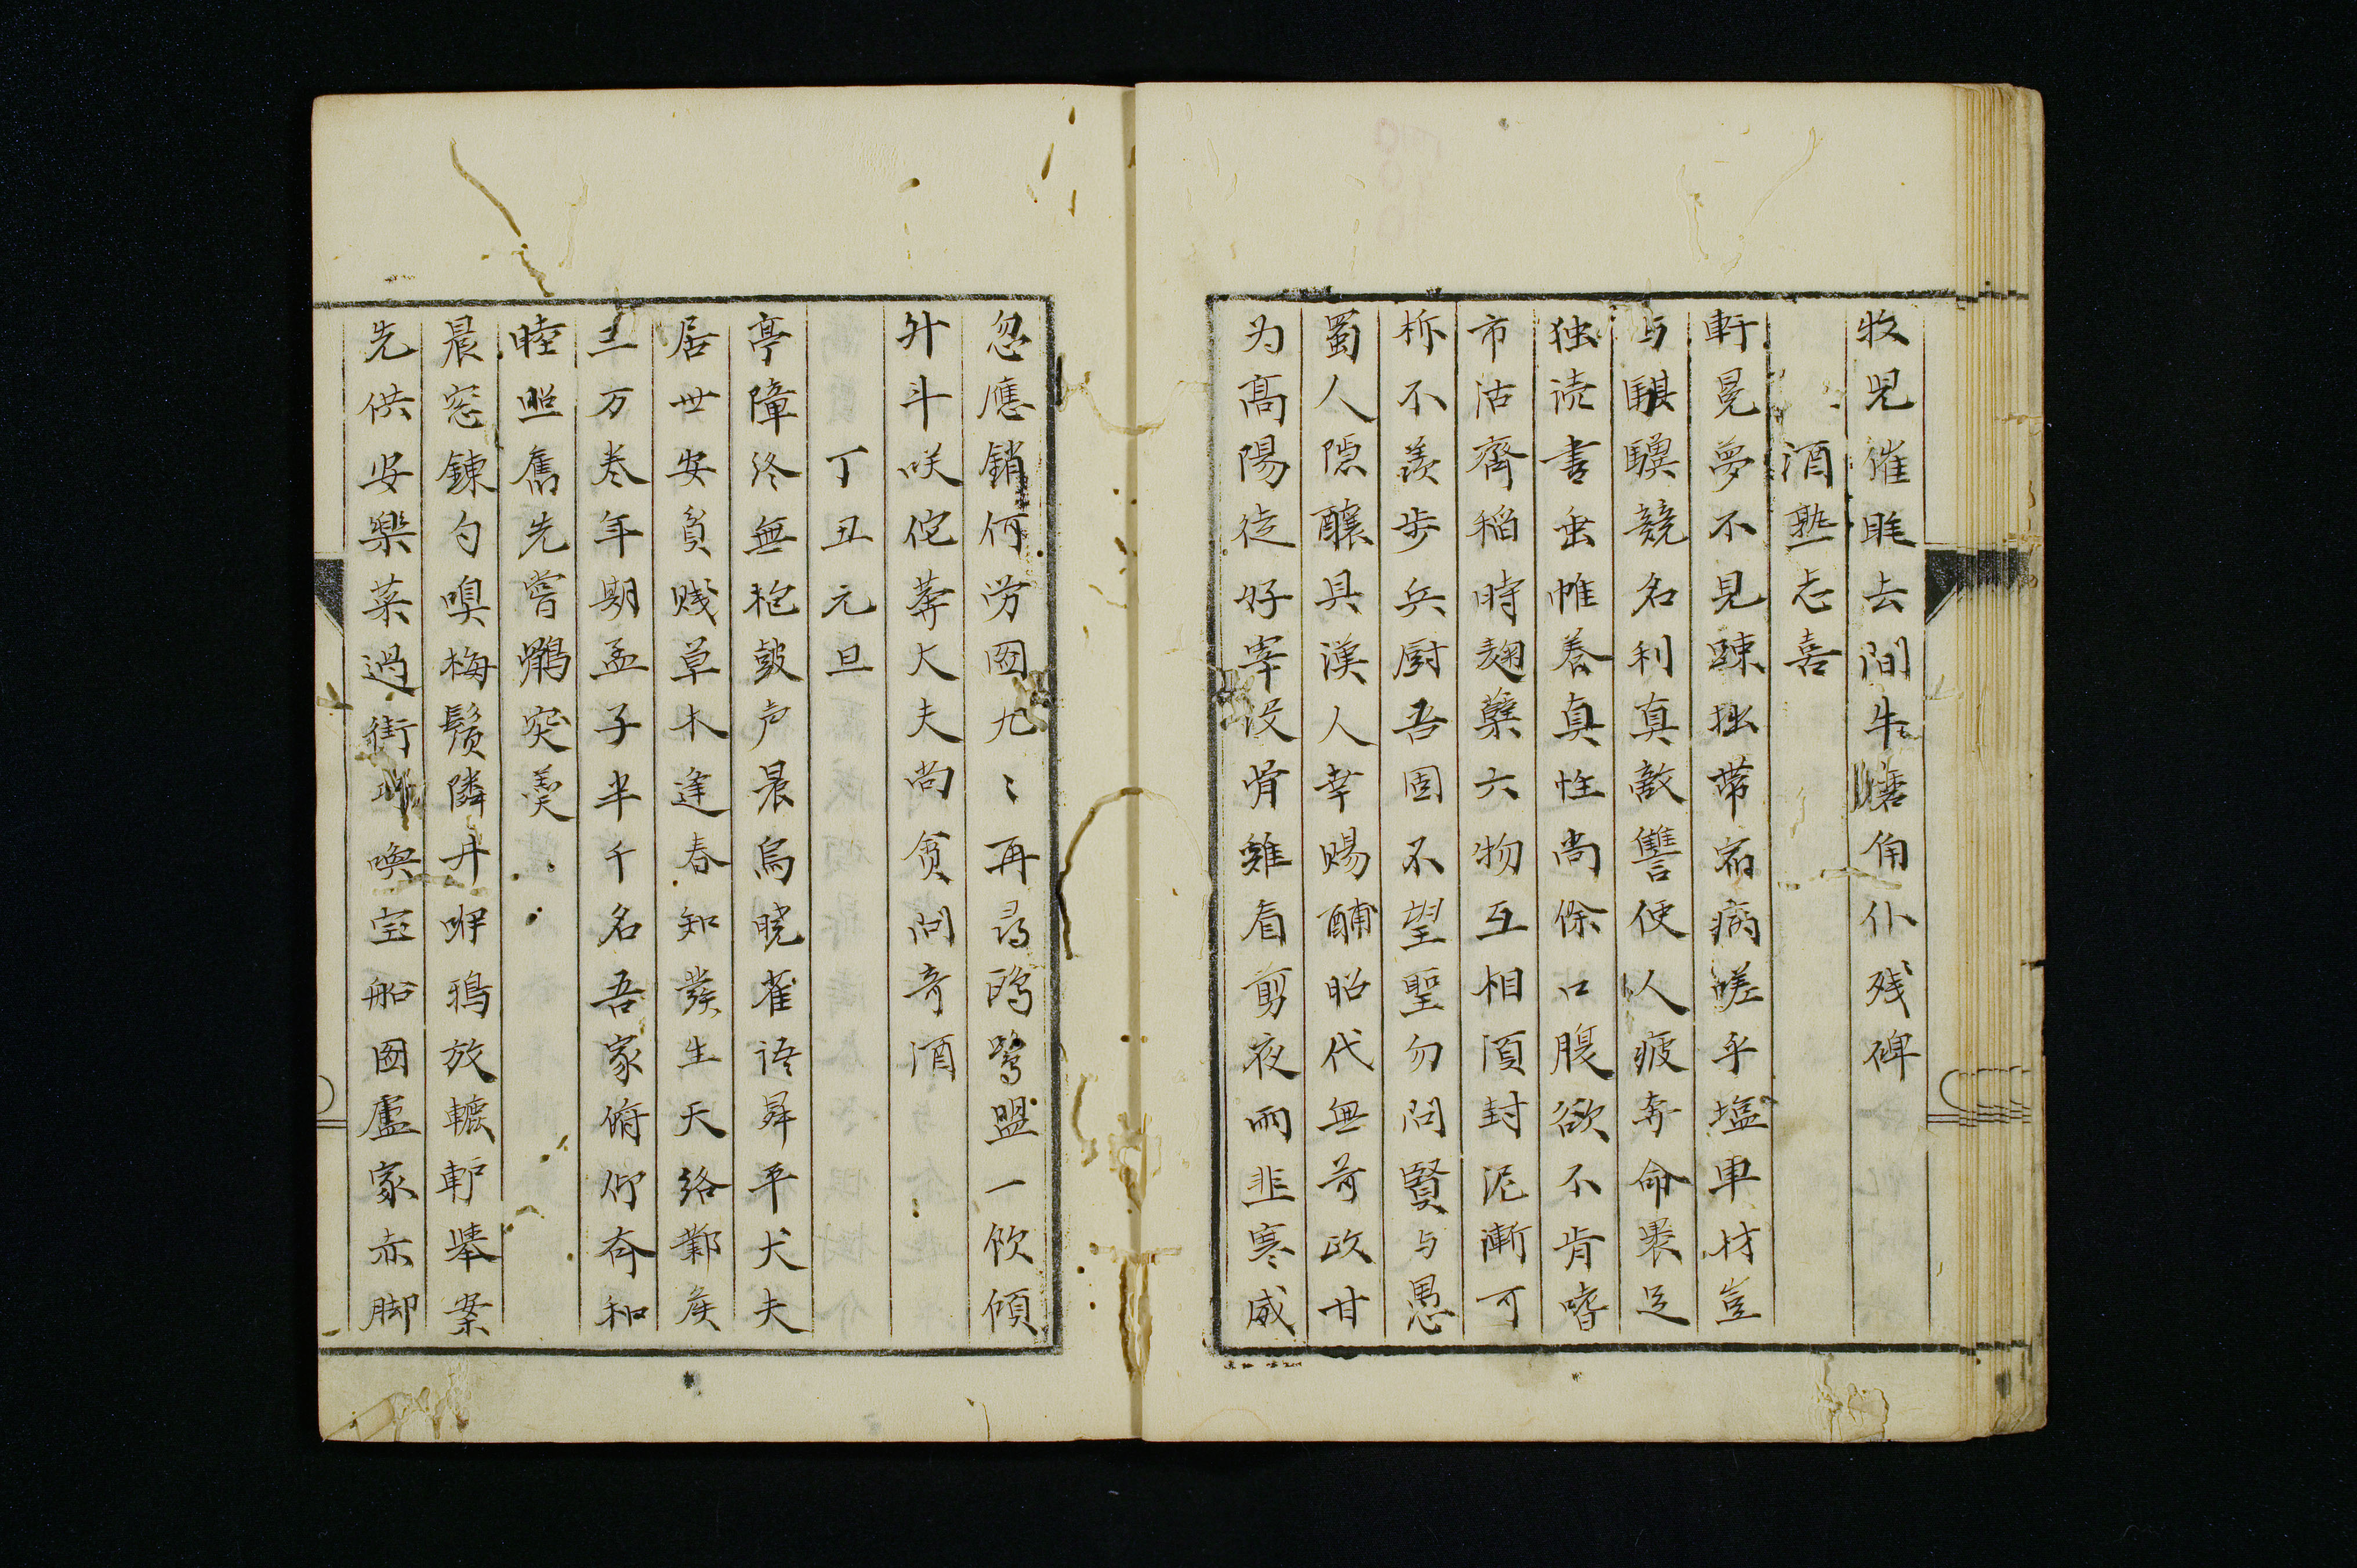 牧児催眠去間牛礪角仆残碑
酒熟志喜
軒冕夢不見踈拙帯宿病嗟乎塩車材豈
与騏驥競名利真敵讐使人疲奔命褁足
独読書垂帷養真性尚餘口腹欲不肯嗜
市沽齊稲時麹糵六物互相須封泥漸可
柝不羨歩兵厨吾固不望聖勿問賢与愚
蜀人隠釀具漢人幸賜酺昭代無苛政甘
为髙陽徒好宰殳脊難看剪夜雨韭寒威
忽應銷何労圀九〻再尋鴎鷺盟一飲傾
升斗咲佗莾大夫尚貪問奇酒
丁丑元旦
亭障終無枹鼓声晨烏暁雀語昇平犬夫
居世安貧賎草木逢春知發生天絡鄴矦
三万巻年期孟子半千名吾家俯仰有和
睦照舊先嘗鶻突羮
晨窓錬句嗅梅鬚隣井咿鴉放轆轤挙案
先供安楽菜過街喚宝船圀盧家赤脚